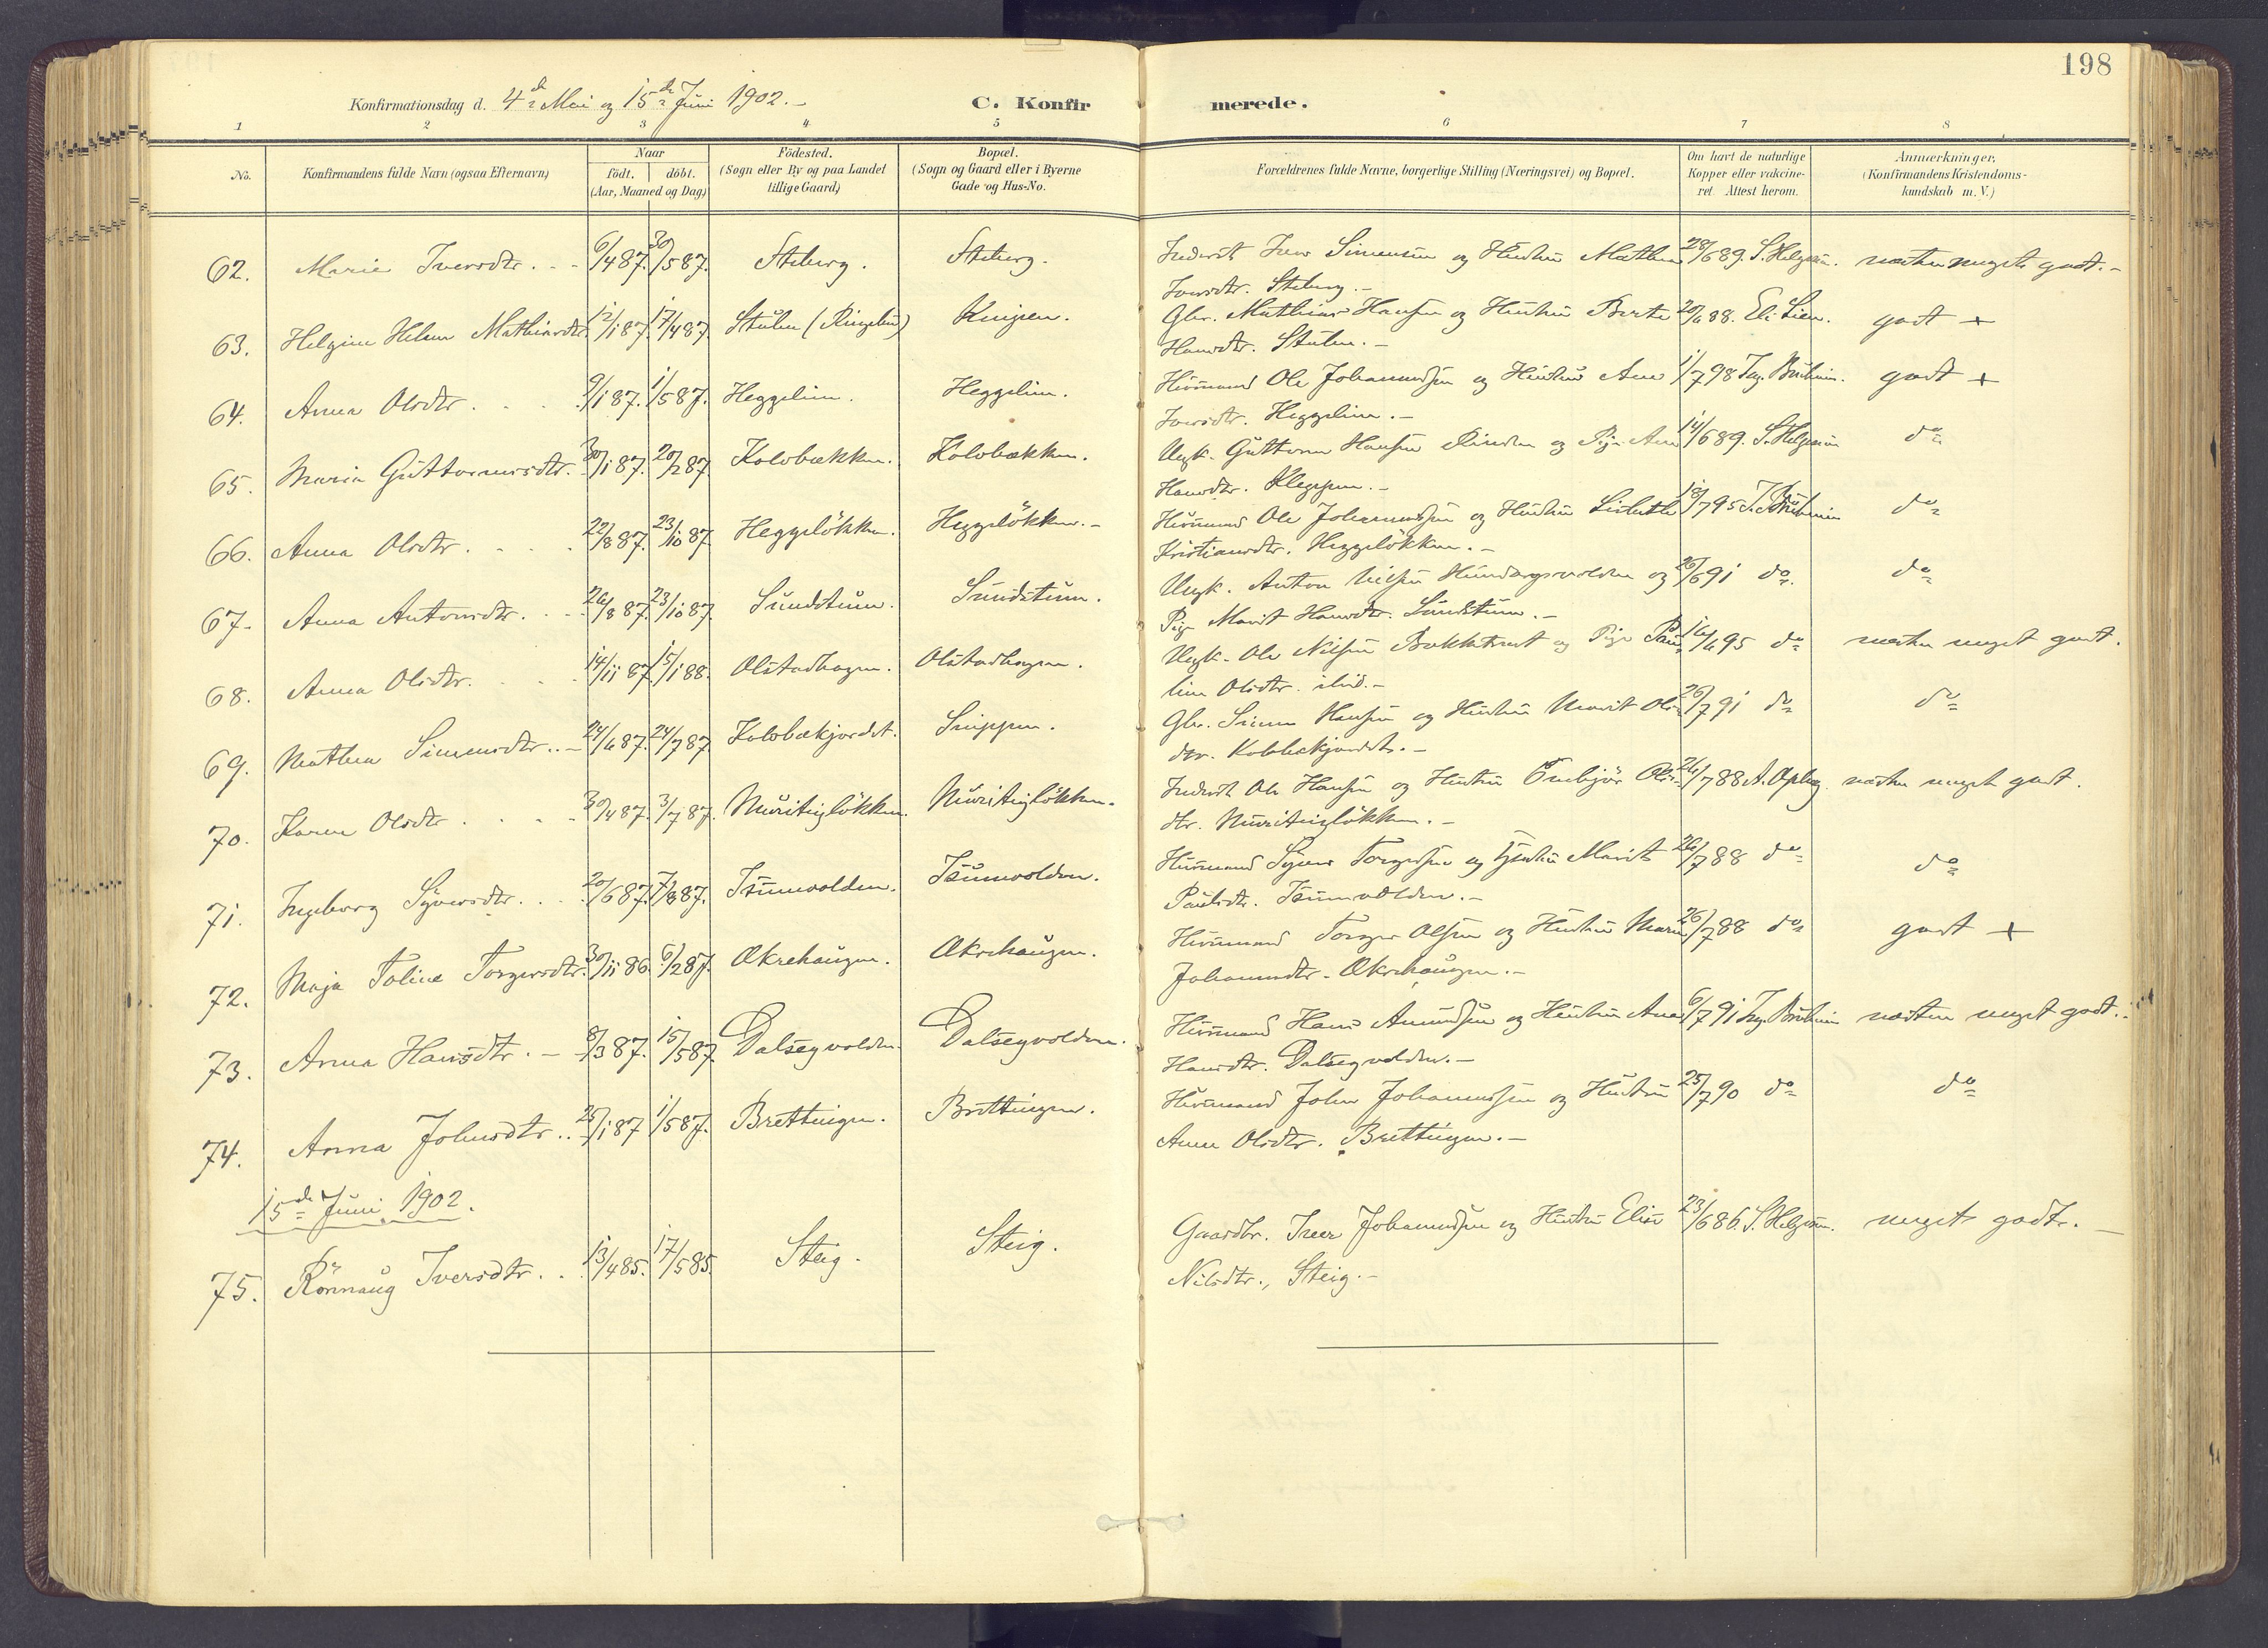 198
Konfirmationsdag d. 4de Mai og 15de Juni 1902.-
C. Konfir merede.
1 2 3 4 5 6 7 8
No.
Konfirmandens fulde Navn (ogsaa Efternavn)
Naar
födt. döbt.
(Aar, Maaned og Dag)
Födested.
(Sogn eller By og paa Landet
tillige Gaard)
Bopæl.
(Sogn og Gaard eller i Byerne
Gade og Hus-No.
Forældrenes fulde Navne, borgerlige Stilling (Næringsvei) og Bopæl.
Om havt de naturlige
Kopper eller vakcine-
ret. Attest herom.
Anmærkninger,
(Konfirmandens Kristendoms-
kundskab m. V.)
62. Marie Iversdtr. 6/4 87. 30/5 87. Steberg. Steberg. Inderst Iver Simensen og Hustru Mathea 28/6 89. S. Helgesen. næsten meget godt.-
Iversdtr. Steberg.-
63. Helgine Helene Mathiasdtr. 12/1 87. 17/4 87. Stulen (Ringebu) Knipen. Gbr. Mathias Hansen og Hustru Berte 20/6 88. Eli Lien. godt +
Hansdtr. Stulen.-
64. Anna Olsdtr. 9/1 87. 1/5 87. Heggelien. Heggelien. Husmand Ole Johannessen og Hustru Ane 1/7 98 Ing. Bræheim. godt +
Iversdtr. Heggelien.-
65. Maria Guttormsdtr. 30/1 87. 20/2 87. Kolobækken. Kolobækken. Ungk. Guttorm Hansen Rinden og Pige Ane 14/6 89. S. Helgesen do
Hansdtr. Kleppen.-
66. Anna Olsdtr. 22/8 87. 23/10 87. Heggelökken. Heggelökken.- Husmand Ole Johannessen og Hustru Lisbeth 18/7 95 do
Kristiansdtr. Heggelökken.-
67. Anna Antonsdtr. 26/8 87. 23/10 87. Sundstuen. Sundstuen. Ungk. Anton Nilsen og 26/6 91 do. do
Pige Marit Hansdtr. Sundstuen.-
68. Anna Olsdtr. 14/11 87. 15/1 88. Olstadhagen. Olstadhagen. Ungk. Ole Nilsen og Pige Pau- 16/6 95 do næsten meget godt.
line Olsdtr. ibid.-
69. Mathea Simensdtr. 24/6 87. 24/7 87. Kolobækjordet. Snippen. Gbr. Simen Hansen og Hustru Marit Ols- 26/7 91 do do
dtr. Kolobekjordet.-
70. Karen Olsdtr. 30/4 87. 3/7 87. Muristuglökken. Muristuglökken. Inderst Ole Hansen og Hustru Embjör Ols- 26/7 88 A. Opheg. næsten meget godt.
dtr. Muristuglökken.-
71. Ingeborg Syversdtr. 20/6 87. 7/8 87. Isumvolden. Isumvolden. Husmand Syver Torgersen og Hustru Marit 26/7 88 do do
Paulsdtr. Isumvolden.-
72. Maja Toline Torgersdtr. 30/11 86. 6/2 87. Ækrehaugen. Ækrehaugen. Husmand Torger Olsen og Hustru Maria 26/7 88 do godt +
Johannesdtr. Ækrehaugen.-
73. Anna Hansdtr.- 8/3 87. 15/5 87. Dalsegvolden. Dalsegvolden. Husmand Hans Amundsen og Hustru Ane 6/7 91 Ing. Bræheim næsten meget godt.
Hansdtr. Dalsegvolden.-
74. Anna Johnsdtr. 25/1 87 1/5 87. Brettingen. Brettingen. Husmand John Johannessen og Hustru 25/7 90 do do
Anne Olsdtr. Brettingen.-
15de Juni 1902.
75. Rönnaug Iversdtr. 13/4 85. 17/5 85. Steig. Steig. Gaardbr. Iver Johannessen og Hustru Elise 23/6 86 S. Helgesen. meget godt.-
Nilsdtr., Steig.-